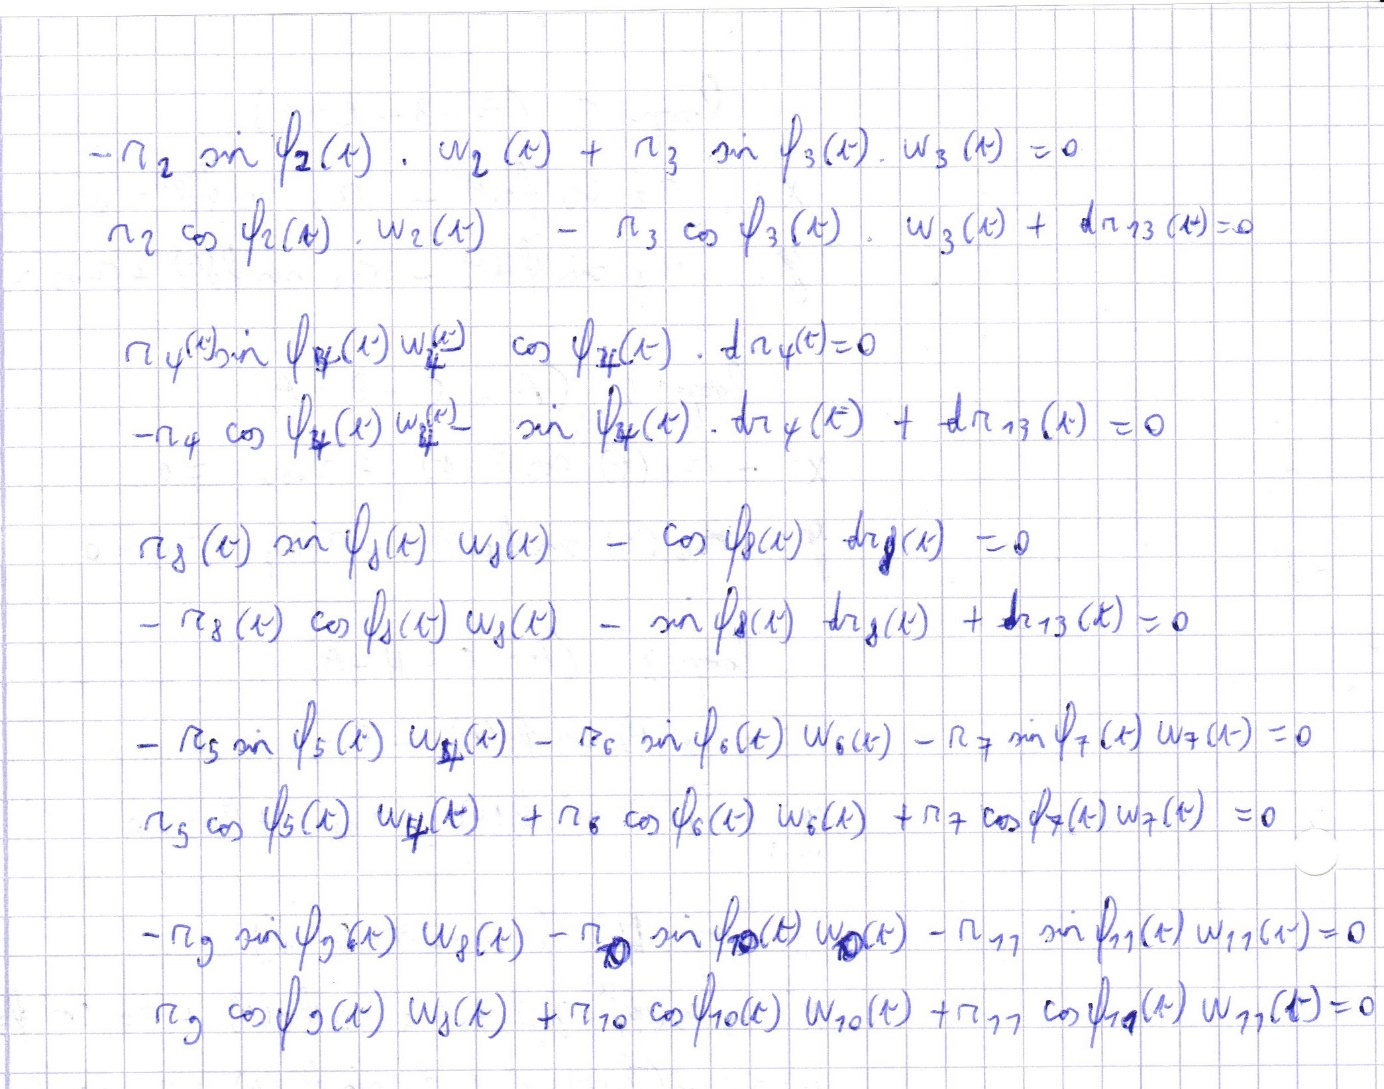 -r₂ sin φ₂(t) . w₂(t) + r₃ sin φ₃(t) . w₃(t) = 0
r₂ cos φ₂(t) . w₂(t) - r₃ cos φ₃(t) . w₃(t) + dr₁₃(t) = 0
r₄(t) sin φ₄(t) w₄(t) - cos φ₄(t) . dr₄(t) = 0
-r₄ cos φ₄(t) w₄(t) - sin φ₄(t) . dr₄(t) + dr₁₃(t) = 0
r₈(t) sin φ₈(t) w₈(t) - cos φ₈(t) dr₈(t) = 0
- r₈(t) cos φ₈(t) w₈(t) - sin φ₈(t) dr₈(t) + dr₁₃(t) = 0
- r₅ sin φ₅(t) w₄(t) - r₆ sin φ₆(t) w₆(t) - r₇ sin φ₇(t) w₇(t) = 0
r₅ cos φ₅(t) w₄(t) + r₆ cos φ₆(t) w₆(t) + r₇ cos φ₇(t) w₇(t) = 0
-r₉ sin φ₉(t) w₈(t) - r₁₀ sin φ₁₀(t) w₁₀(t) - r₁₁ sin φ₁₁(t) w₁₁(t) = 0
r₉ cos φ₉(t) w₈(t) + r₁₀ cos φ₁₀(t) w₁₀(t) + r₁₁ cos φ₁₁(t) w₁₁(t) = 0